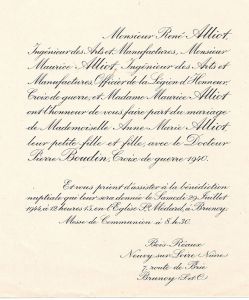 Monsieur René Alliot,
Ingénieur des Arts et Manufactures, Monsieur
Maurice Alliot, Ingénieur des Arts et
Manufactures, Officier de la Légion d'Honneur,
Croix de guerre, et Madame Maurice Alliot
ont l'honneur de vous faire part du mariage
de Mademoiselle Anne-Marie Alliot,
leur petite-fille et fille, avec le Docteur
Pierre Boudin, Croix de guerre 1940.
Et vous prient d'assister à la bénédiction
nuptiale qui leur sera donnée le Samedi 29 Juillet
1944, à 12 heures 15, en l'Église St Médard, à Brunoy.
Messe de Communion à 8 h. 30.
Bois-Réaux
Neuvy-sur-Loire Nièvre
7, route de Brie
Brunoy S. et O.